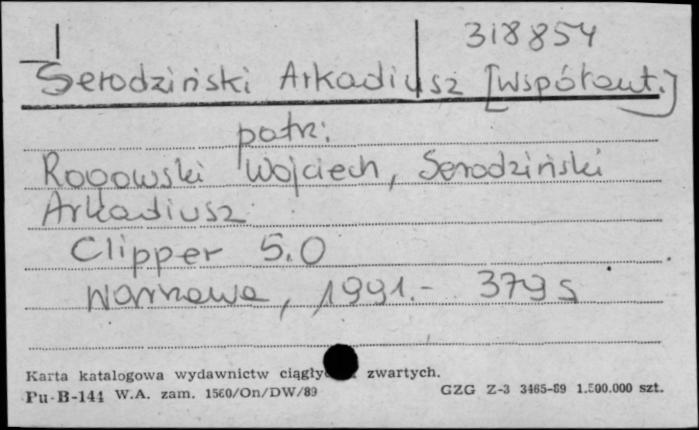 318854
Serodziński Arkadiusz [współaut.]
patrz:
Rogowski Wojciech, Serodziński
Arkadiusz
Clipper 5.0
Warszawa, 1991.- 379 s
Karta katalogowa wydawnictw ciągły zwartych.
Pu-B-144 W.A. zam. 1560/On/DW/89 GZG Z-3 3465-89 1.500.000 szt.